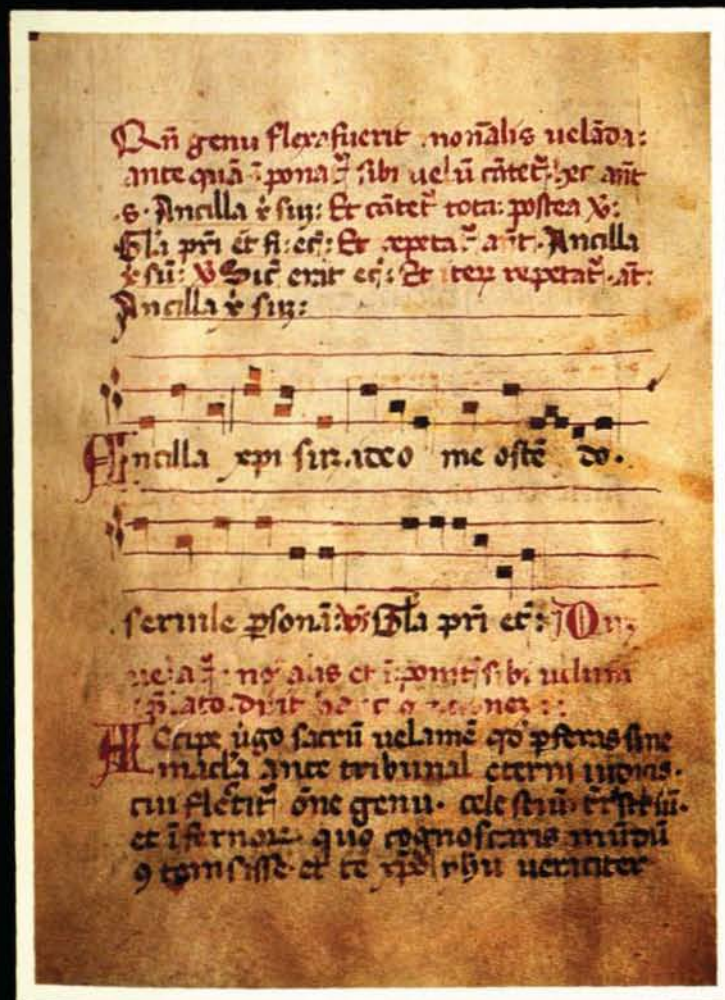 Qn̄ genu flexo fuerit .monialis uelāda:
ante quā īponat᷑ sibi uelū cātet᷑: hec ant̄
.s. Ancilla x̄ sum: Et cātet᷑ tota: postea V̄:
Gl̄a pr̄i et fi: ec̄: Et repetat᷑ ant̄. Ancilla
x̄ sū: V̄ Sic̄ erat ec̄: Et iterꝝ repetat᷑ .at̄:
Ancilla x̄ sum:
Ancilla xp̄i sum.ideo me ostē do.
seruile ꝑsonā: V̄ Gl̄a pr̄i ec̄:
et īponit᷑ sibi
Accipe ūgo sacrū uelamē qḋ ꝑferas sine
macl̄a ante tribunal eterni iudicis.
cui flectit᷑ ōne genu. celestiū t̄rrestriū.
et īfernoꝝ. quo cognoscaris mūdū
ꝯtempsisse. et te xp̄o ihū ueraciter